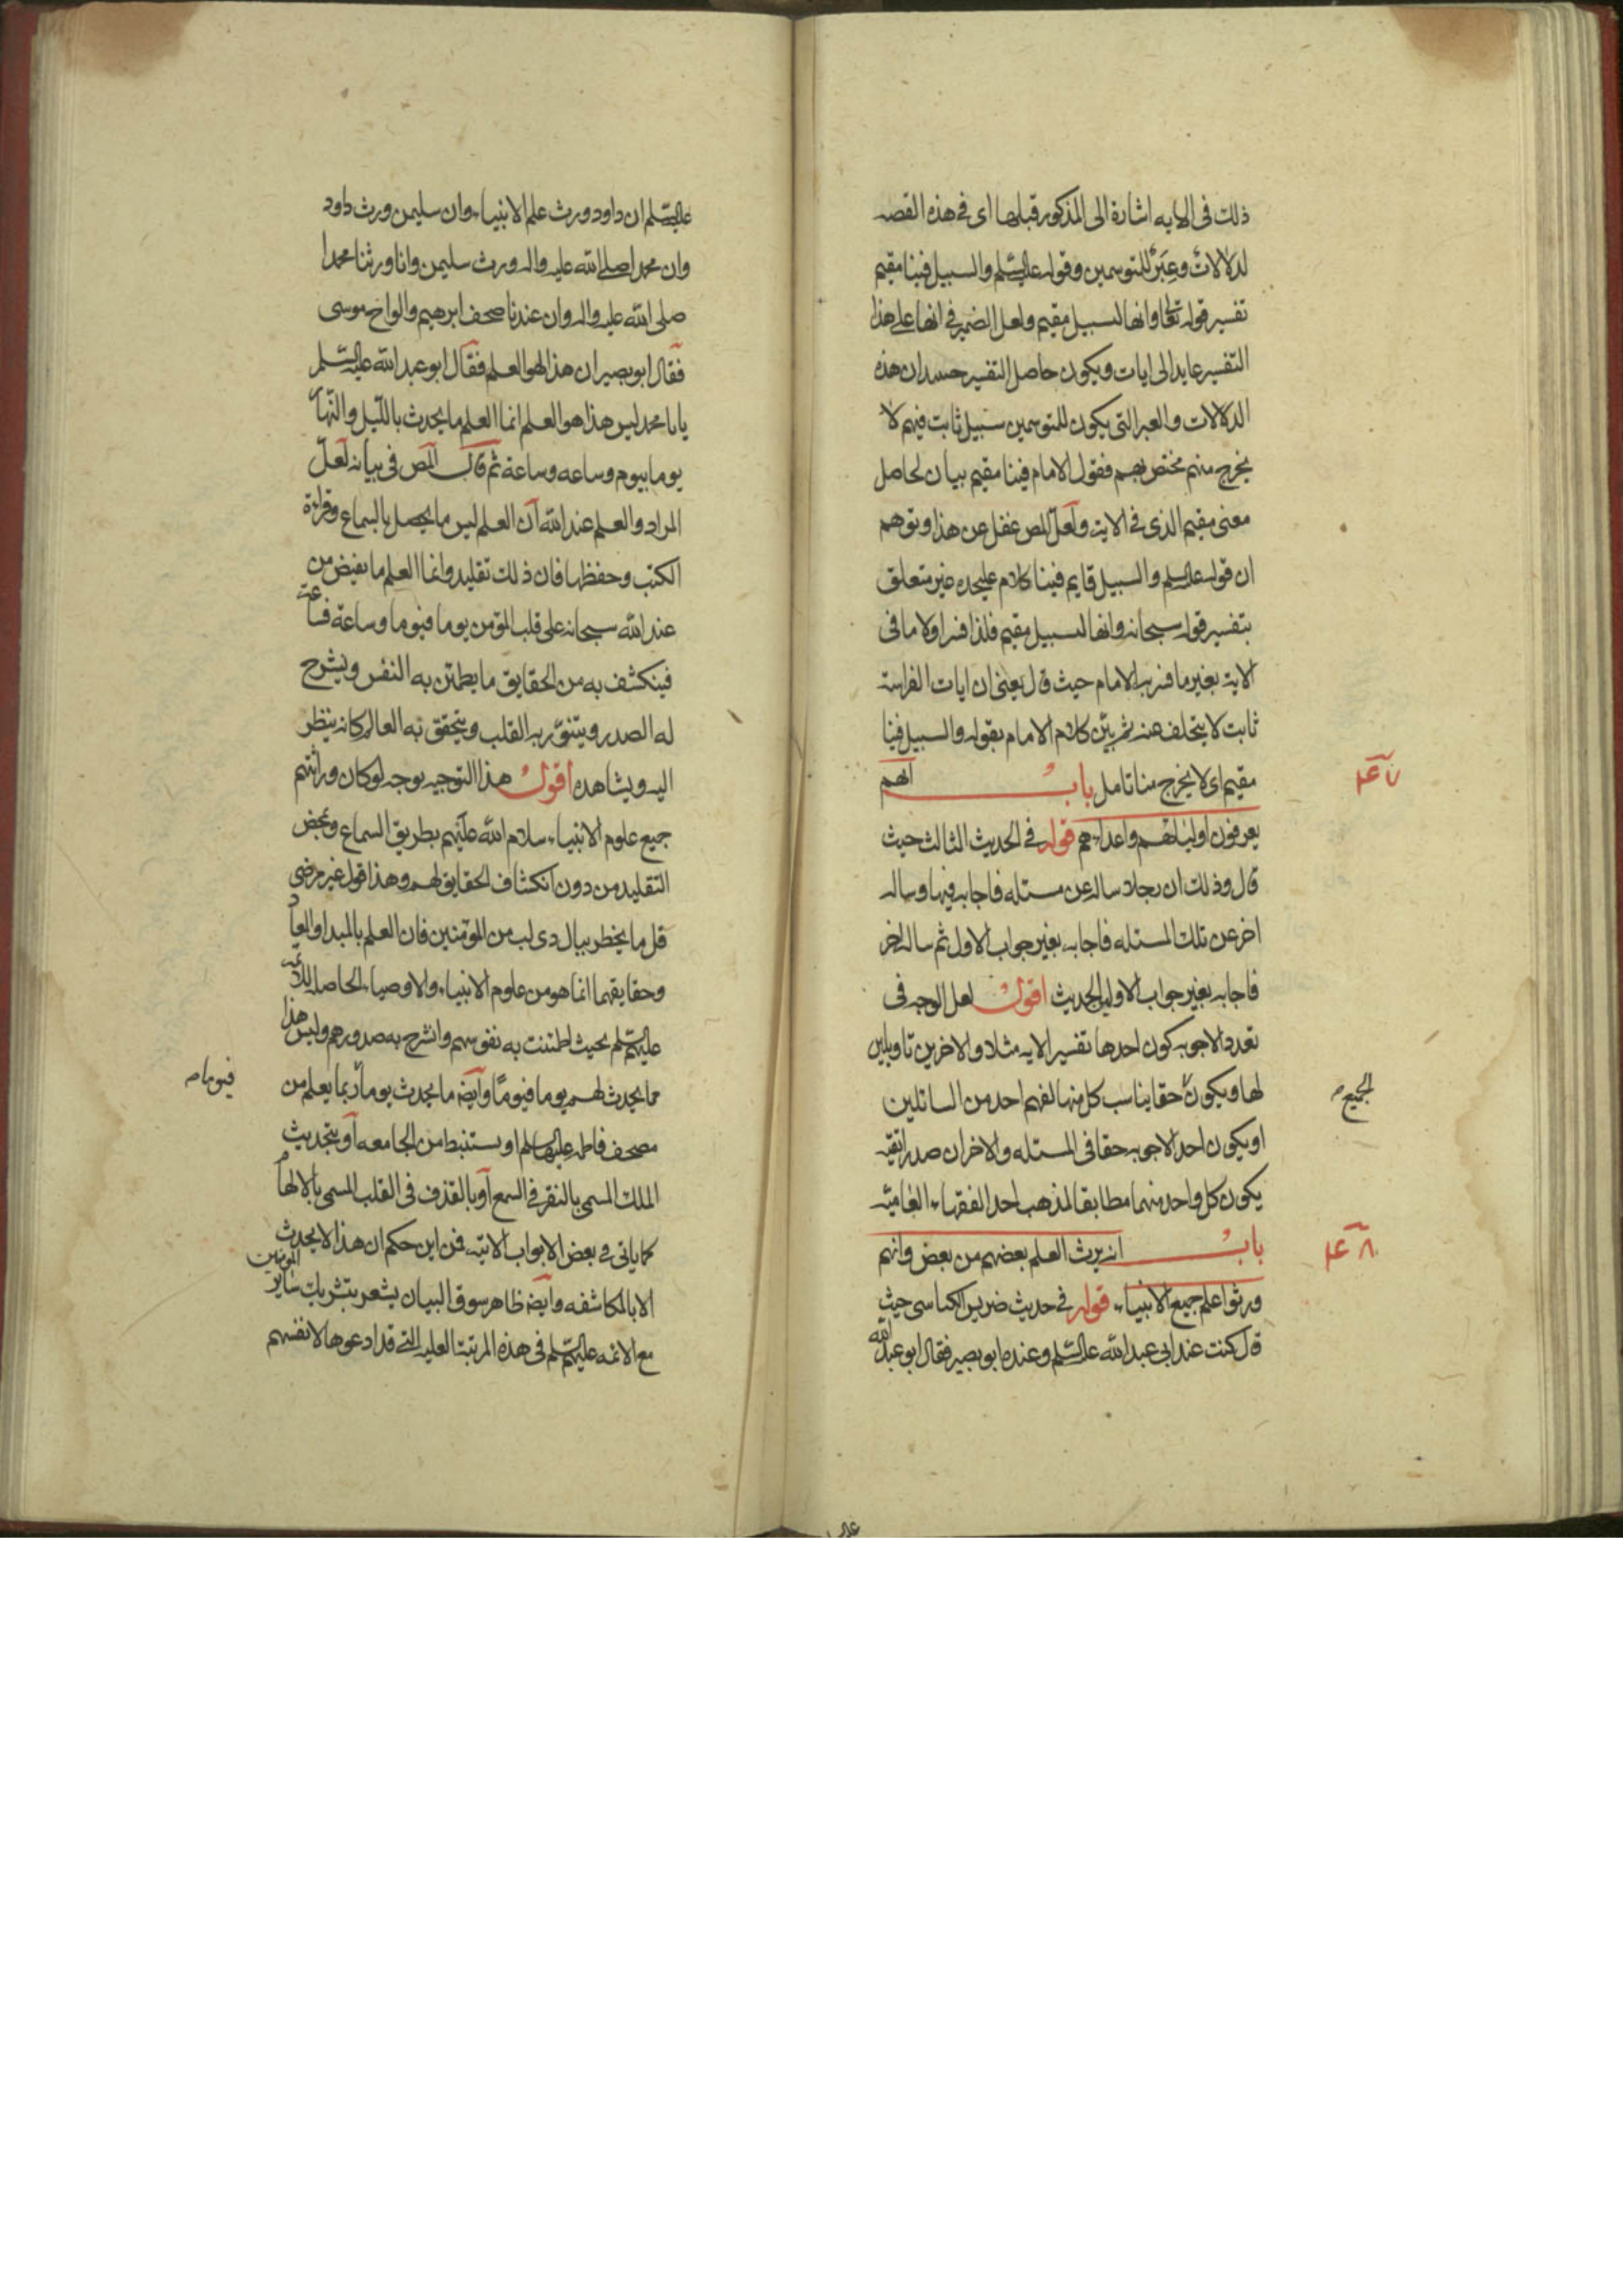 ذلك فى الايه اشارة الى المذكور قبلها اى فى هذه القصه
لدلالات وعبر للمتوسمين وقوله عليه السلم والسبيل فينا مقيم
تفسير قوله تعالى وانها لبسبيل مقيم ولعل الضمير فى انها على هذا
التفسير عايد الى ايات ويكون حاصل التفسير حينئذ ان هذه
الدلالات والعبر التى يكون للمتوسمين سبيل ثابت فيهم لا
يخرج منهم مختص بهم فقول الامام فينا مقيم بيان لحاصل
معنى مقيم الذى فى الاية ولعل المص غفل عن هذا وتوهم
ان قوله عليه السلم والسبيل قايم فينا كلام عليحده غير متعلق
بتفسير قوله سبحانه وانها لبسبيل مقيم فلذا فسر اولا ما فى
الاية بغير ما فسر به الامام حيث قال يعنى ان ايات الفراسة
ثابت لا يتخلف عنه ثم بين كلام الامام بقوله والسبيل فينا
مقيم اى لا يخرج منا تامل باب انهم
يعرفون اوليائهم واعدائهم قوله فى الحديث الثالث حيث
قال وذلك ان رجلا ساله عن مسئله فاجابه فيها وساله
اخر عن تلك المسئله فاجابه بغير جواب الاول ثم ساله اخر
فاجابه بغير جواب الاولين الحديث اقول لعل الوجه فى
تعدد الاجوبه كون احدها تفسير الايه مثلا والاخرين تاويلين
لها ويكون حقا يناسب كل منها لفهم احد من السائلين
الجميع
او يكون احد الاجوبه حقا فى المسئله والاخران صدرا تقيه
يكون كل واحد منهما مطابقا لمذهب احد الفقهاء العاميه
باب انه يرث العلم بعضهم من بعض وانهم
ورثوا علم جميع الانبياء قوله فى حديث ضريس الكناسى حيث
قال كنت عند ابى عبد الله عليه السلم وعنده ابو بصير فقال ابو عبد الله
عليه السلم ان داود ورث علم الانبياء وان سليمن ورث داود
وان محمدا صلى الله عليه واله ورث سليمن وانا ورثنا محمدا
صلى الله عليه واله وان عندنا صحف ابرهيم والواح موسى
فقال ابو بصير ان هذا لهو العلم فقال ابو عبد الله عليه السلم
يا با محمد ليس هذا هو العلم انما العلم ما يحدث بالليل والنهار
يوما بيوم وساعه وساعة ثم قال المص فى بيانه لعل
المراد والعلم عند الله ان العلم ليس ما يحصل بالسماع وقراءة
الكتب وحفظها فان ذلك تقليد وانما العلم ما يفيض من
عند الله سبحانه على قلب المؤمن يوما فيوما وساعة فساعة
فينكشف به من الحقايق ما يطمئن به النفس وينشرح
له الصدر ويتنور به القلب ويتحقق به العالم كانه ينظر
اليه ويشاهده اقول هذا التوجيه يوجه لو كان وراثتهم
جميع علوم الانبياء سلام الله عليهم بطريق السماع وبمحض
التقليد من دون انكشاف الحقايق لهم وهذا قول غير مرضى
قل ما يخطر ببال ذى لب من المؤمنين فان العلم بالمبدا والمعاد
وحقايقهما انما هو من علوم الانبياء والاوصياء الحاصله للائمه
عليهم السلم بحيث اطمئنت به نفوسهم وانشرح به صدورهم وليس هذا
مما يحدث لهم يوما فيوما وايضا ما يحدث يوما ربما يعلم من
فيوما
مصحف فاطمه عليها السلم او يستنبط من الجامعه او بتحديث
الملك المسمى بالنقر فى السمع او بالقذف فى القلب المسمى بالالهام
كما ياتى فى بعض الابواب الاتيه فمن اين حكم ان هذا لا يحدث
الا بالمكاشفه وايضا ظاهر سوق البيان يشعر بتشريك ساير المؤمنين
مع الائمه عليهم السلم فى هذه المرتبة العليه التى قد ادعوها لانفسهم